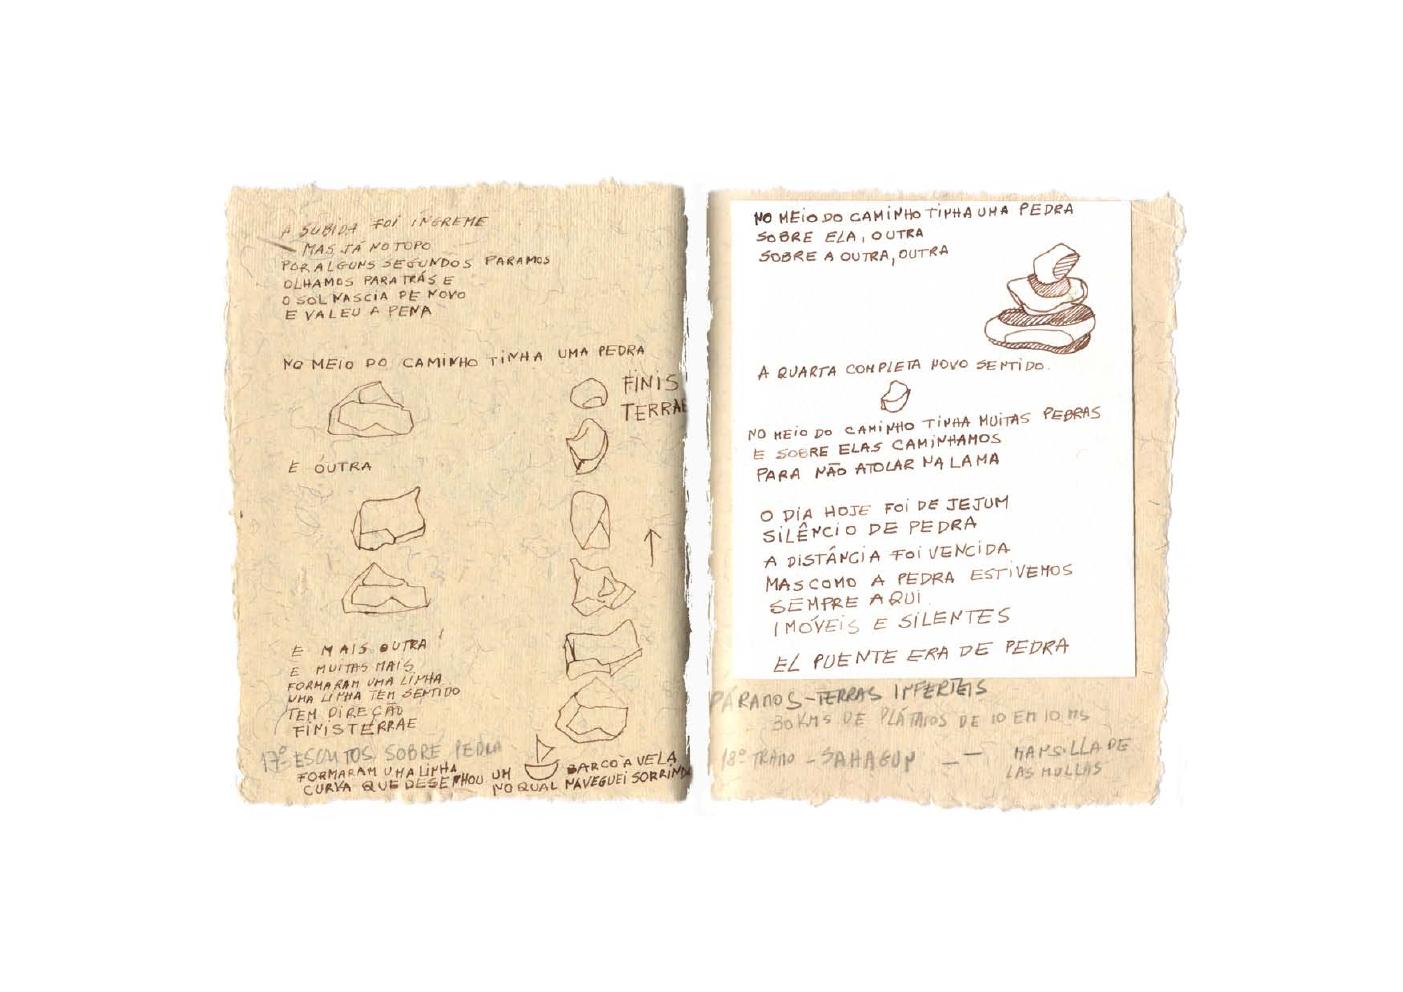 A SUBIDA FOI ÍNGREME
— MAS JÁ NO TOPO
POR ALGUNS SEGUNDOS PARAMOS
OLHAMOS PARA TRÁS E
O SOL NASCIA DE NOVO
E VALEU A PENA
NO MEIO DO CAMINHO TINHA UMA PEDRA
FINIS
TERRAE
E OUTRA
E MAIS OUTRA!
E MUITAS MAIS
FORMARAM UMA LINHA
UMA LINHA TEM SENTIDO
TEM DIREÇÃO
FINISTERRAE
17º ESCRITOS SOBRE PEDRA
FORMARAM UMA LINHA
CURVA QUE DESENHOU UM BARCO À VELA
NO QUAL NAVEGUEI SORRINDO
NO MEIO DO CAMINHO TINHA UMA PEDRA
SOBRE ELA, OUTRA
SOBRE A OUTRA, OUTRA
A QUARTA COMPLETA NOVO SENTIDO.
NO MEIO DO CAMINHO TINHA MUITAS PEDRAS
E SOBRE ELAS CAMINHAMOS
PARA NÃO ATOLAR NA LAMA
O DIA HOJE FOI DE JEJUM
SILÊNCIO DE PEDRA
A DISTÂNCIA FOI VENCIDA
MAS COMO A PEDRA ESTIVEMOS
SEMPRE AQUI
IMÓVEIS E SILENTES
EL PUENTE ERA DE PEDRA
PÁRAMOS - TERRAS INFERTEIS
30 KMS DE PLÁTANOS DE 10 EM 10 MS
18º TRAMO - SAHAGUN — MANSILLA DE
LAS MULLAS